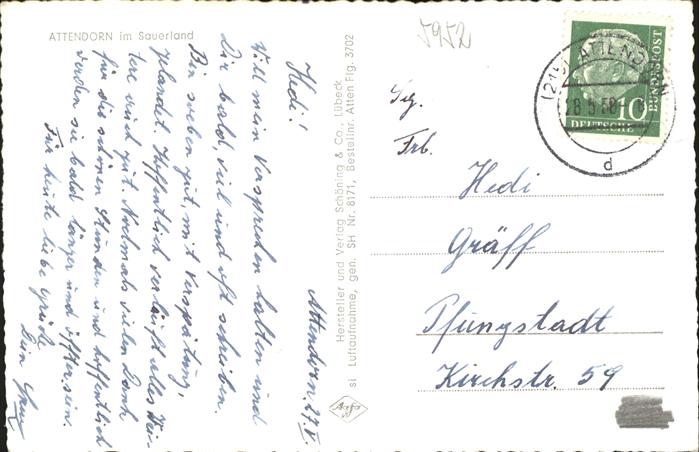 ATTENDORN im Sauerland
Attendorn. 27. V.
Hedi!
Will mein Versprechen halten und
Dir bald, viel und oft schreiben.
Bin soeben gut, mit Verspätung,
gelandet. Hoffentlich verläuft alles Wei-
tere auch gut. Nochmals vielen Dank
für die schönen Stunden und hoffentlich
werden sie bald länger und öfter sein.
Für heute liebe Grüße
Dein
Hersteller und Verlag Schöning & Co., Lübeck
si Luftaufnahme, gen. SH Nr. 8171, Bestellnr. Atten Flg. 3702
agfa
5952
(21b) ATTENDORN
d
10
DEUTSCHE
BUNDESPOST
Frl.
Hedi
Gräff
Pfungstadt
Kirchstr. 59